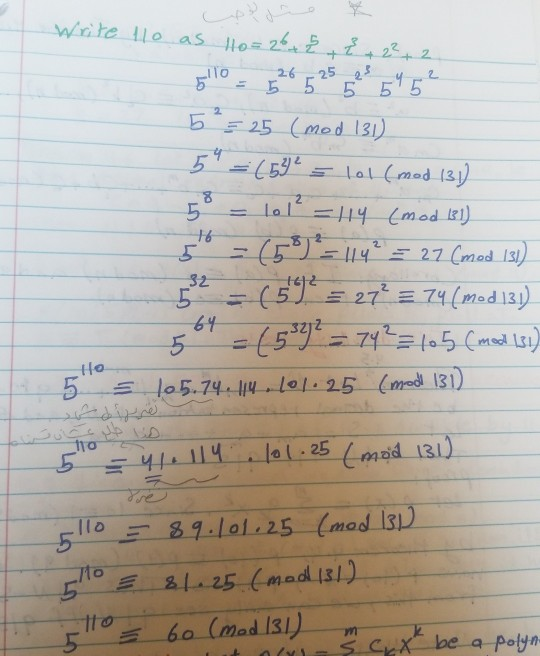 مثال لا يجب
Write 110 as 110 = 2⁶ + 2⁵ + 2³ + 2² + 2
5¹¹⁰ = 5^2⁶ 5^2⁵ 5^2³ 5⁴ 5²
5² ≡ 25 (mod 131)
5⁴ = (5²)² ≡ 101 (mod 131)
5⁸ ≡ 101² ≡ 114 (mod 131)
5¹⁶ = (5⁸)² = 114² ≡ 27 (mod 131)
5³² = (5¹⁶)² ≡ 27² ≡ 74 (mod 131)
5⁶⁴ = (5³²)² = 74² ≡ 105 (mod 131)
5¹¹⁰ ≡ 105.74.114.101.25 (mod 131)
5¹¹⁰ ≡ 41.114.101.25 (mod 131)
5¹¹⁰ ≡ 89.101.25 (mod 131)
5¹¹⁰ ≡ 81.25 (mod 131)
5¹¹⁰ ≡ 60 (mod 131)
be a polyn